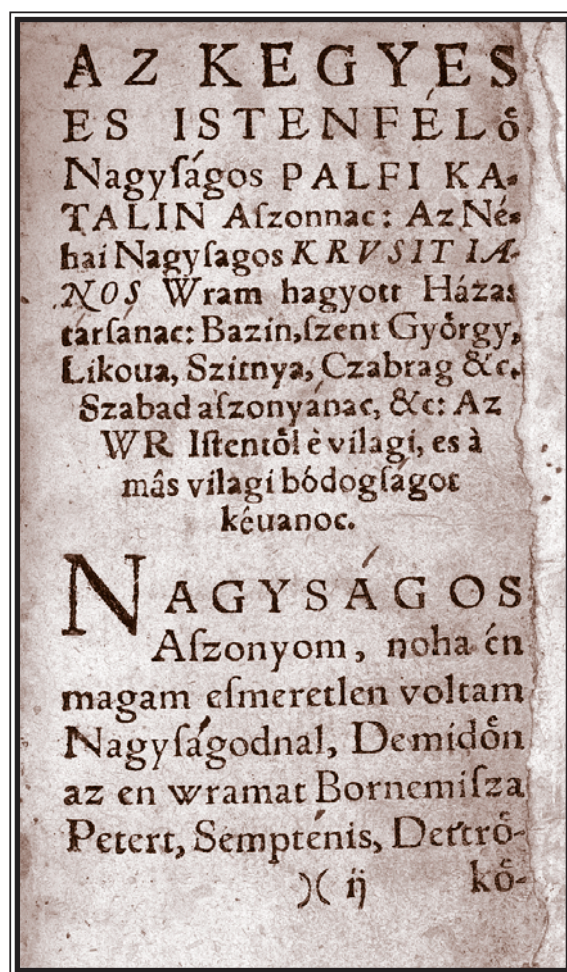 AZ KEGYES
ES ISTENFÉLo̊
Nagyſágos PALFI KA-
TALIN Aſzonnac: Az Né-
hai Nagyſagos KRVSIT IA-
NOS Wram hagyott Házas
tarſanac: Bazin, ſzent Gyo̊rgy,
Likoua, Szitnya, Czabrag &c.
Szabad aſzonyánac, &c: Az
WR Iſtento̊l è világi, es à
mâs vilagi bódogſágot
kêuanoc.
NAGYSÁGOS
Aſzonyom, noha én
magam eſmeretlen voltam
Nagyſágodnal, De mido̊n
az en wramat Bornemiſza
Petert, Sempténis, Detro̊-
)( ij ko̊-